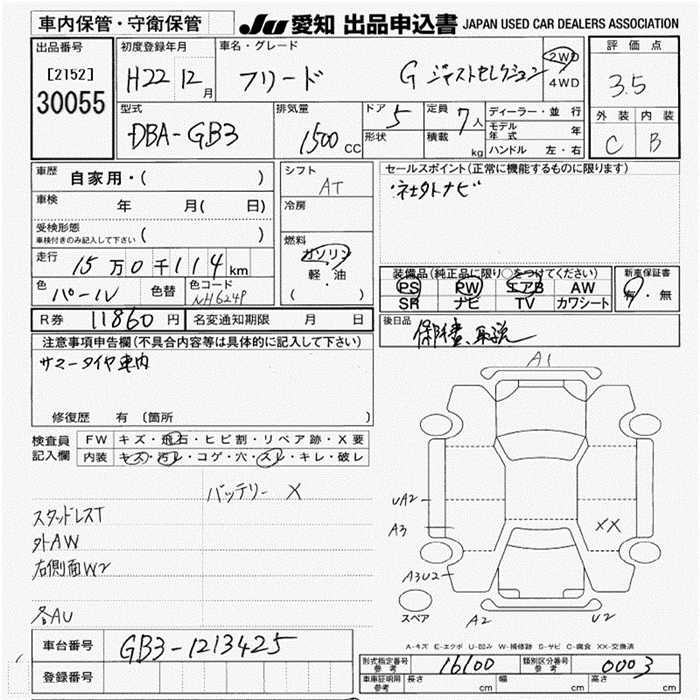 車内保管・守衛保管
JU 愛知 出品申込書 JAPAN USED CAR DEALERS ASSOCIATION
出品番号
[2152]
30055
初度登録年月
H22 12月
車名・グレード
フリード G ジャストセレクション
2WD
4WD
評価点
3.5
外装 内装
C B
型式
DBA-GB3
排気量
1500 CC
ドア 5
形状
定員 7人
積載 kg
ディーラー・並行
モデル年式 年
ハンドル 左・右
車歴 自家用・( )
車検 年 月( 日)
受検形態
車検付きのみ記入して下さい ( )
走行 15万0千114km
色 パール 色替 色コード NH624P
シフト
AT
冷房
燃料
ガソリン
軽・油
( )
セールスポイント(正常に機能するものに限ります)
・社外ナビ
装備品(純正品に限り○をつけてください)
PS PW エアB AW
SR ナビ TV カワシート
新車保証書
有・無
R券 11860円 名変通知期限 月 日
後日品
保証書、取説
注意事項申告欄(不具合内容等は具体的に記入して下さい)
サマータイヤ車内
修復歴 有 (箇所 )
検査員記入欄
FW キズ・飛石・ヒビ割・リペア跡・X要
内装 キズ・汚レ・コゲ・穴・スレ・キレ・破レ
バッテリー X
スタッドレスT
外AW
右側面W2
各AU
A1
UA2
A3
A3U2
XX
スペア
A2
U2
A-キズ E-エクボ U-凹み W-補修跡 S-サビ C-腐食 XX-交換済
車台番号 GB3-1213425
登録番号
形式指定番号 参考 16100
類別区分番号 参考 0003
車庫証明用 参考 長さ cm 幅 cm 高さ cm